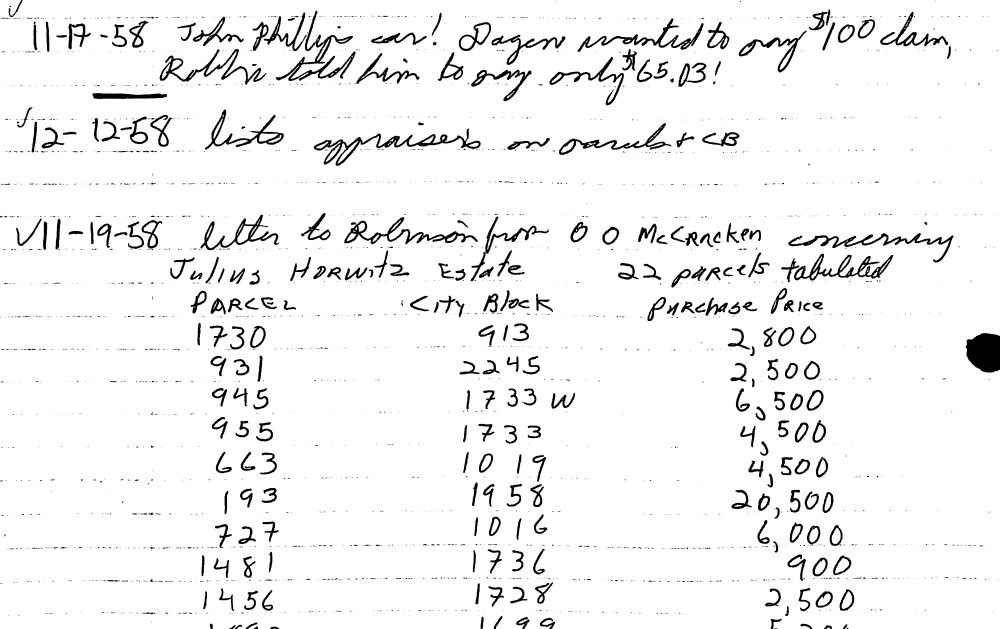 11-17-58 John Phillips car! Dagen wanted to pay $100 claim,
Robbie told him to pay only $65.03!
12-12-58 lists appraisers on parcels + CB
√11-19-58 letter to Robinson from O O McCracken concerning
Julius Horwitz Estate 22 parcels tabulated
PARCEL City Block Purchase Price
1730 913 2,800
931 2245 2,500
945 1733 W 6,500
955 1733 4,500
663 1019 4,500
193 1958 20,500
727 1016 6,000
1481 1736 900
1456 1728 2,500